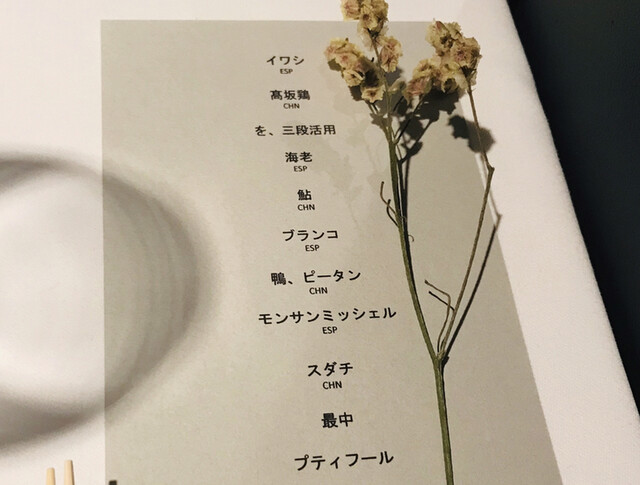 イワシ
ESP
髙坂鶏
CHN
を、三段活用
海老
ESP
鮎
CHN
ブランコ
ESP
鴨、ピータン
CHN
モンサンミッシェル
ESP
スダチ
CHN
最中
プティフール